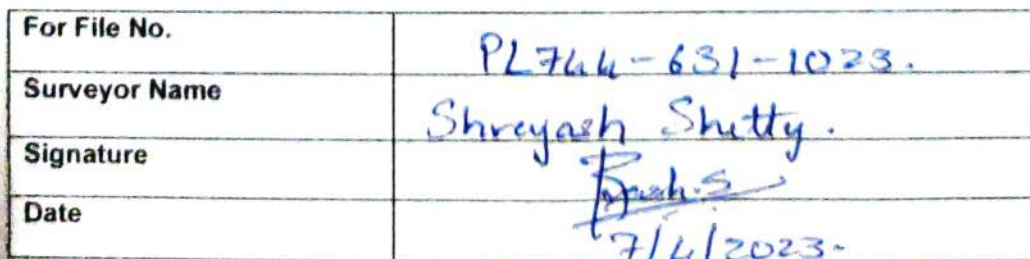 For File No. PL744-631-1023.
Surveyor Name Shreyash Shetty.
Signature
Date 7/4/2023.